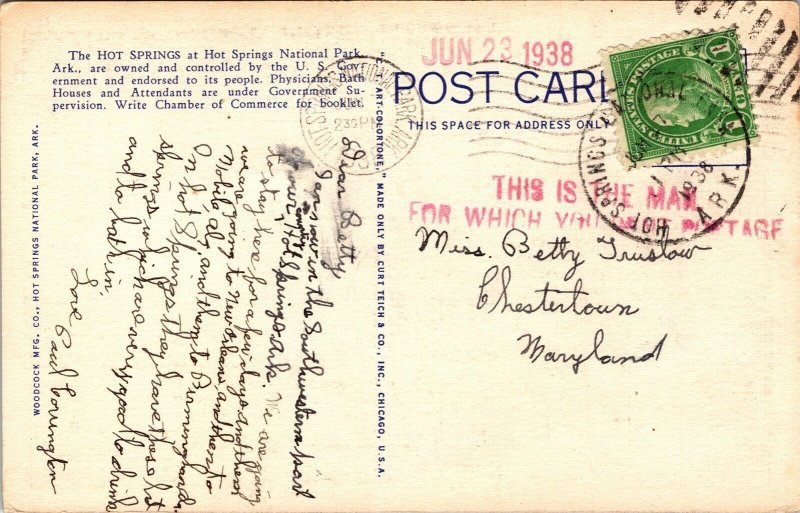 The HOT SPRINGS at Hot Springs National Park,
Ark., are owned and controlled by the U. S. Gov-
ernment and endorsed to its people. Physicians, Bath
Houses and Attendants are under Government Su-
pervision. Write Chamber of Commerce for booklet.
JUN 23 1938
POST CARD
THIS SPACE FOR ADDRESS ONLY
HOT SPRINGS NATIONAL PARK, ARK.
230 PM
1938
HOT SPRINGS NATIONAL
ARK.
1938
UNITED STATES POSTAGE
1
THIS IS THE MAIL
FOR WHICH YOU POSTAGE
Miss. Betty Truslow
Chestertown
Maryland
Dear Betty
I am now in the Southwestern part
Hot Springs Ark. We are going
to stay here for a few days and then
we are going to New Orleans, and then to
Mobile Al, and then to Birmingham.
On Hot Springs they have these hot
springs which are very good to drink
and to bath in.
Love
Paul Covington
"ART-COLORTONE," MADE ONLY BY CURT TEICH & CO., INC., CHICAGO, U.S.A.
WOODCOCK MFG. CO., HOT SPRINGS NATIONAL PARK, ARK.